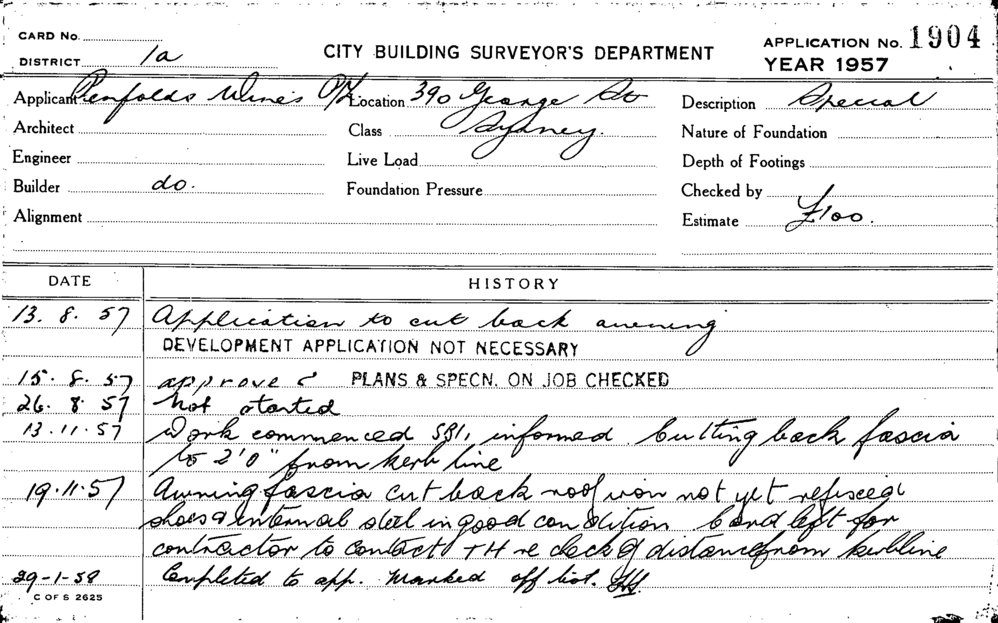 CARD No.
DISTRICT 1a
CITY BUILDING SURVEYOR'S DEPARTMENT
APPLICATION No. 1904
YEAR 1957
Applicant Penfolds Wines P/L Location 390 George St Description Special
Architect Class Sydney. Nature of Foundation
Engineer Live Load Depth of Footings
Builder do. Foundation Pressure Checked by
Alignment Estimate £100.
DATE HISTORY
13. 8. 57 Application to cut back awning
DEVELOPMENT APPLICATION NOT NECESSARY
15. 8. 57 approved PLANS & SPECN. ON JOB CHECKED
26. 8 57 Not started
13.11.57 Work commenced SBI, informed. Cutting back fascia
to 2'0" from kerb line
19.11.57 Awning fascia cut back roof iron not yet
shoes & internal steel in good condition Card left for
contractor to contact TH re check of distance from kerbline
29-1-58 Completed to app. Marked off list.
C OF S 2625